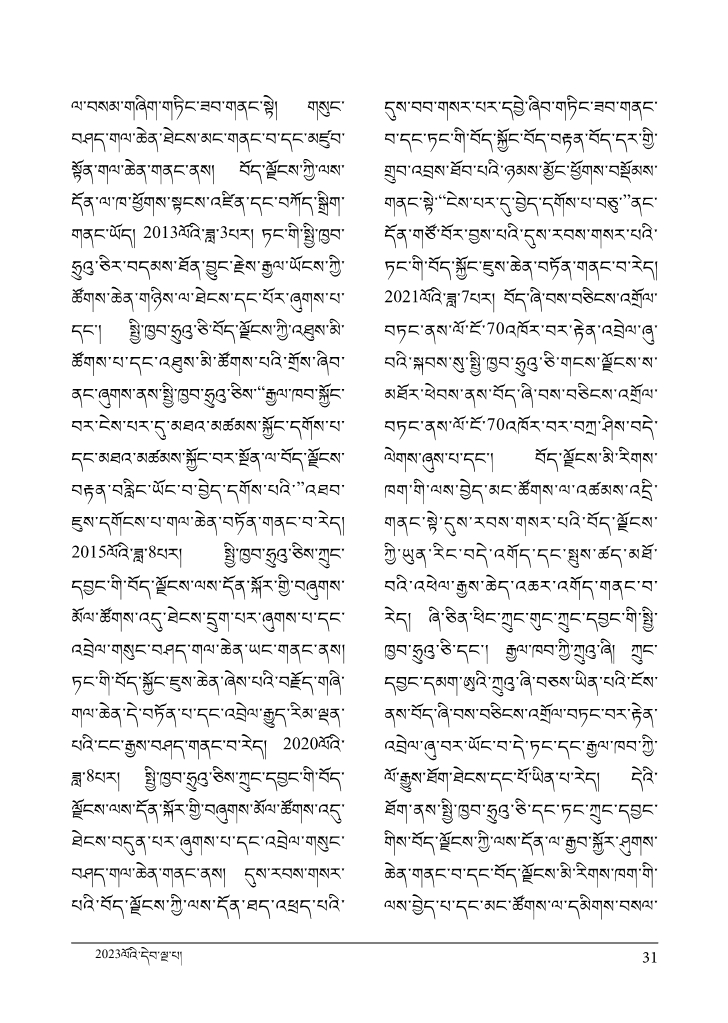 ལ་བསམ་གཞིག་གཏིང་ཟབ་གནང་སྟེ། གསུང་
བཤད་གལ་ཆེན་ཐེངས་མང་གནང་བ་དང་མཛུབ་
སྟོན་གལ་ཆེན་གནང་ནས། བོད་ལྗོངས་ཀྱི་ལས་
དོན་ལ་ཁ་ཕྱོགས་སྟངས་འཛིན་དང་བཀོད་སྒྲིག་
གནང་ཡོད། 2013ལོའི་ཟླ་3པར། ཏང་གི་སྤྱི་ཁྱབ་
ཧྲུའུ་ཅིར་བདམས་ཐོན་བྱུང་རྗེས་རྒྱལ་ཡོངས་ཀྱི་
ཚོགས་ཆེན་གཉིས་ལ་ཐེངས་དང་པོར་ཞུགས་པ་
དང་། སྤྱི་ཁྱབ་ཧྲུའུ་ཅི་བོད་ལྗོངས་ཀྱི་འཐུས་མི་
ཚོགས་པ་དང་འཐུས་མི་ཚོགས་པའི་གྲོས་ཞིབ་
ནང་ཞུགས་ནས་སྤྱི་ཁྱབ་ཧྲུའུ་ཅིས་“རྒྱལ་ཁབ་སྐྱོང་
བར་ངེས་པར་དུ་མཐའ་མཚམས་སྐྱོང་དགོས་པ་
དང་མཐའ་མཚམས་སྐྱོང་བར་སྔོན་ལ་བོད་ལྗོངས་
བརྟན་བརླིང་ཡོང་བ་བྱེད་དགོས་པའི་”འཐབ་
ཇུས་དགོངས་པ་གལ་ཆེན་བཏོན་གནང་བ་རེད།
2015ལོའི་ཟླ་8པར། སྤྱི་ཁྱབ་ཧྲུའུ་ཅིས་ཀྲུང་
དབྱང་གི་བོད་ལྗོངས་ལས་དོན་སྐོར་གྱི་བཞུགས་
མོལ་ཚོགས་འདུ་ཐེངས་དྲུག་པར་ཞུགས་པ་དང་
འབྲེལ་གསུང་བཤད་གལ་ཆེན་ཡང་གནང་ནས།
ཏང་གི་བོད་སྐྱོང་ཇུས་ཆེན་ཞེས་པའི་བརྗོད་གཞི་
གལ་ཆེན་དེ་བཏོན་པ་དང་འབྲེལ་རྒྱུད་རིམ་ལྡན་
པའི་ངང་རྒྱས་བཤད་གནང་བ་རེད། 2020ལོའི་
ཟླ་8པར། སྤྱི་ཁྱབ་ཧྲུའུ་ཅིས་ཀྲུང་དབྱང་གི་བོད་
ལྗོངས་ལས་དོན་སྐོར་གྱི་བཞུགས་མོལ་ཚོགས་འདུ་
ཐེངས་བདུན་པར་ཞུགས་པ་དང་འབྲེལ་གསུང་
བཤད་གལ་ཆེན་གནང་ནས། དུས་རབས་གསར་
པའི་བོད་ལྗོངས་ཀྱི་ལས་དོན་ཐད་འཕྲད་པའི་
དུས་བབ་གསར་པར་དབྱེ་ཞིབ་གཏིང་ཟབ་གནང་
བ་དང་ཏང་གི་བོད་སྐྱོང་བོད་བརྟན་བོད་དར་གྱི་
གྲུབ་འབྲས་ཐོབ་པའི་ཉམས་མྱོང་ཕྱོགས་བསྡོམས་
གནང་སྟེ་“ངེས་པར་དུ་བྱེད་དགོས་པ་བཅུ་”ནང་
དོན་གཙོ་བོར་བྱས་པའི་དུས་རབས་གསར་པའི་
ཏང་གི་བོད་སྐྱོང་ཇུས་ཆེན་བཏོན་གནང་བ་རེད།
2021ལོའི་ཟླ་7པར། བོད་ཞི་བས་བཅིངས་འགྲོལ་
བཏང་ནས་ལོ་ངོ་70འཁོར་བར་རྟེན་འབྲེལ་ཞུ་
བའི་སྐབས་སུ་སྤྱི་ཁྱབ་ཧྲུའུ་ཅི་གངས་ལྗོངས་ས་
མཐོར་ཕེབས་ནས་བོད་ཞི་བས་བཅིངས་འགྲོལ་
བཏང་ནས་ལོ་ངོ་70འཁོར་བར་བཀྲ་ཤིས་བདེ་
ལེགས་ཞུས་པ་དང་། བོད་ལྗོངས་མི་རིགས་
ཁག་གི་ལས་བྱེད་མང་ཚོགས་ལ་འཚམས་འདྲི་
གནང་སྟེ་དུས་རབས་གསར་པའི་བོད་ལྗོངས་
ཀྱི་ཡུན་རིང་བདེ་འགོད་དང་སྤུས་ཚད་མཐོ་
བའི་འཕེལ་རྒྱས་ཆེད་འཆར་འགོད་གནང་བ་
རེད། ཞི་ཅིན་ཕིང་ཀྲུང་གུང་ཀྲུང་དབྱང་གི་སྤྱི་
ཁྱབ་ཧྲུའུ་ཅི་དང་། རྒྱལ་ཁབ་ཀྱི་ཀྲུའུ་ཞི། ཀྲུང་
དབྱང་དམག་ཨུའི་ཀྲུའུ་ཞི་བཅས་ཡིན་པའི་ངོས་
ནས་བོད་ཞི་བས་བཅིངས་འགྲོལ་བཏང་བར་རྟེན་
འབྲེལ་ཞུ་བར་ཡོང་བ་དེ་ཏང་དང་རྒྱལ་ཁབ་ཀྱི་
ལོ་རྒྱུས་ཐོག་ཐེངས་དང་པོ་ཡིན་པ་རེད། དེའི་
ཐོག་ནས་སྤྱི་ཁྱབ་ཧྲུའུ་ཅི་དང་ཏང་ཀྲུང་དབྱང་
གིས་བོད་ལྗོངས་ཀྱི་ལས་དོན་ལ་རྒྱབ་སྐྱོར་ཤུགས་
ཆེན་གནང་བ་དང་བོད་ལྗོངས་མི་རིགས་ཁག་གི་
ལས་བྱེད་པ་དང་མང་ཚོགས་ལ་དམིགས་བསལ་
2023ལོའི་དེབ་ལྔ་པ།
31